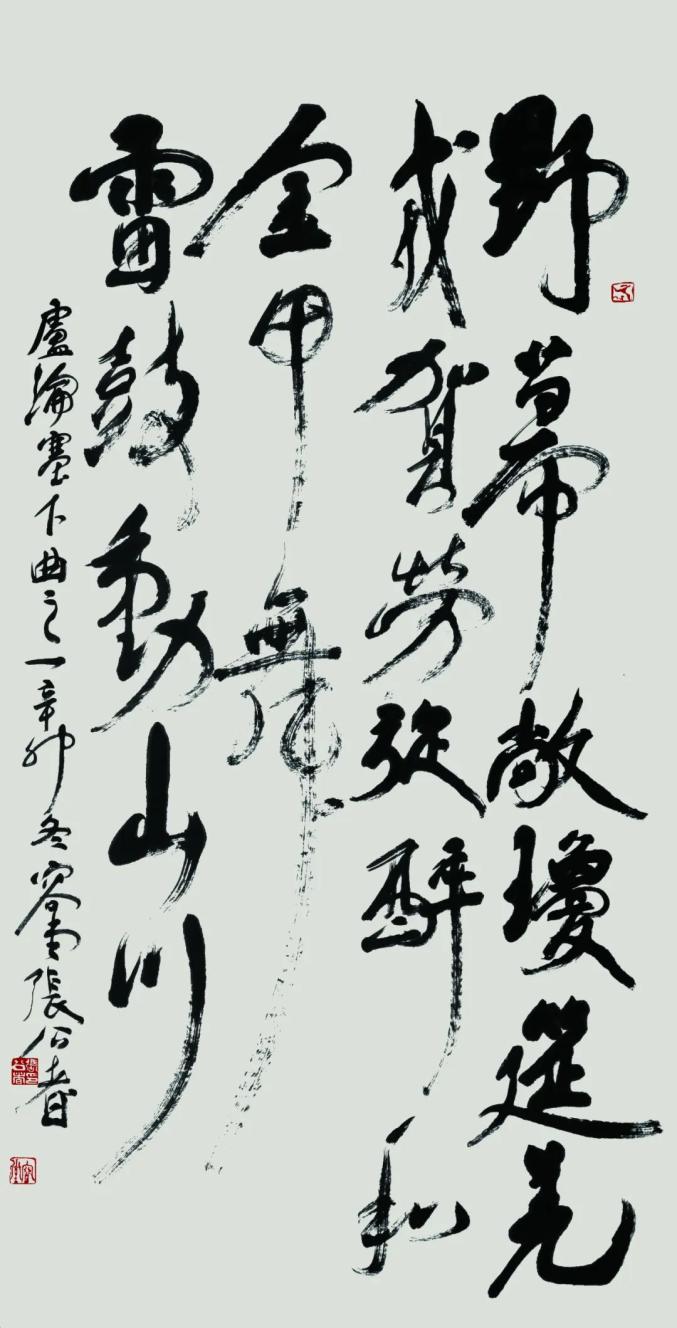 野幕敞瓊筵羌
戎賀勞旋醉和
金甲舞
雷鼓動山川
盧綸塞下曲之一辛卯冬容堂張公者